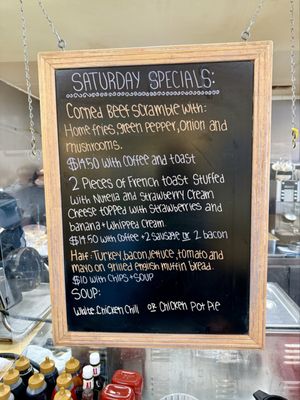 SATURDAY SPECIALS:
Corned Beef Scramble with:
Home fries green pepper, onion and
mushrooms.
$14.50 with coffee and toast
2 Pieces of French toast Stuffed
with Nutella and Strawberry Cream
Cheese topped with strawberries and
banana + whipped cream
$14.50 with coffee + 2 sausage or 2 bacon
Half: Turkey, bacon, lettuce, tomato and
mayo on grilled english muffin bread.
$10 with chips + soup
SOUP:
White Chicken Chili or Chicken Pot Pie